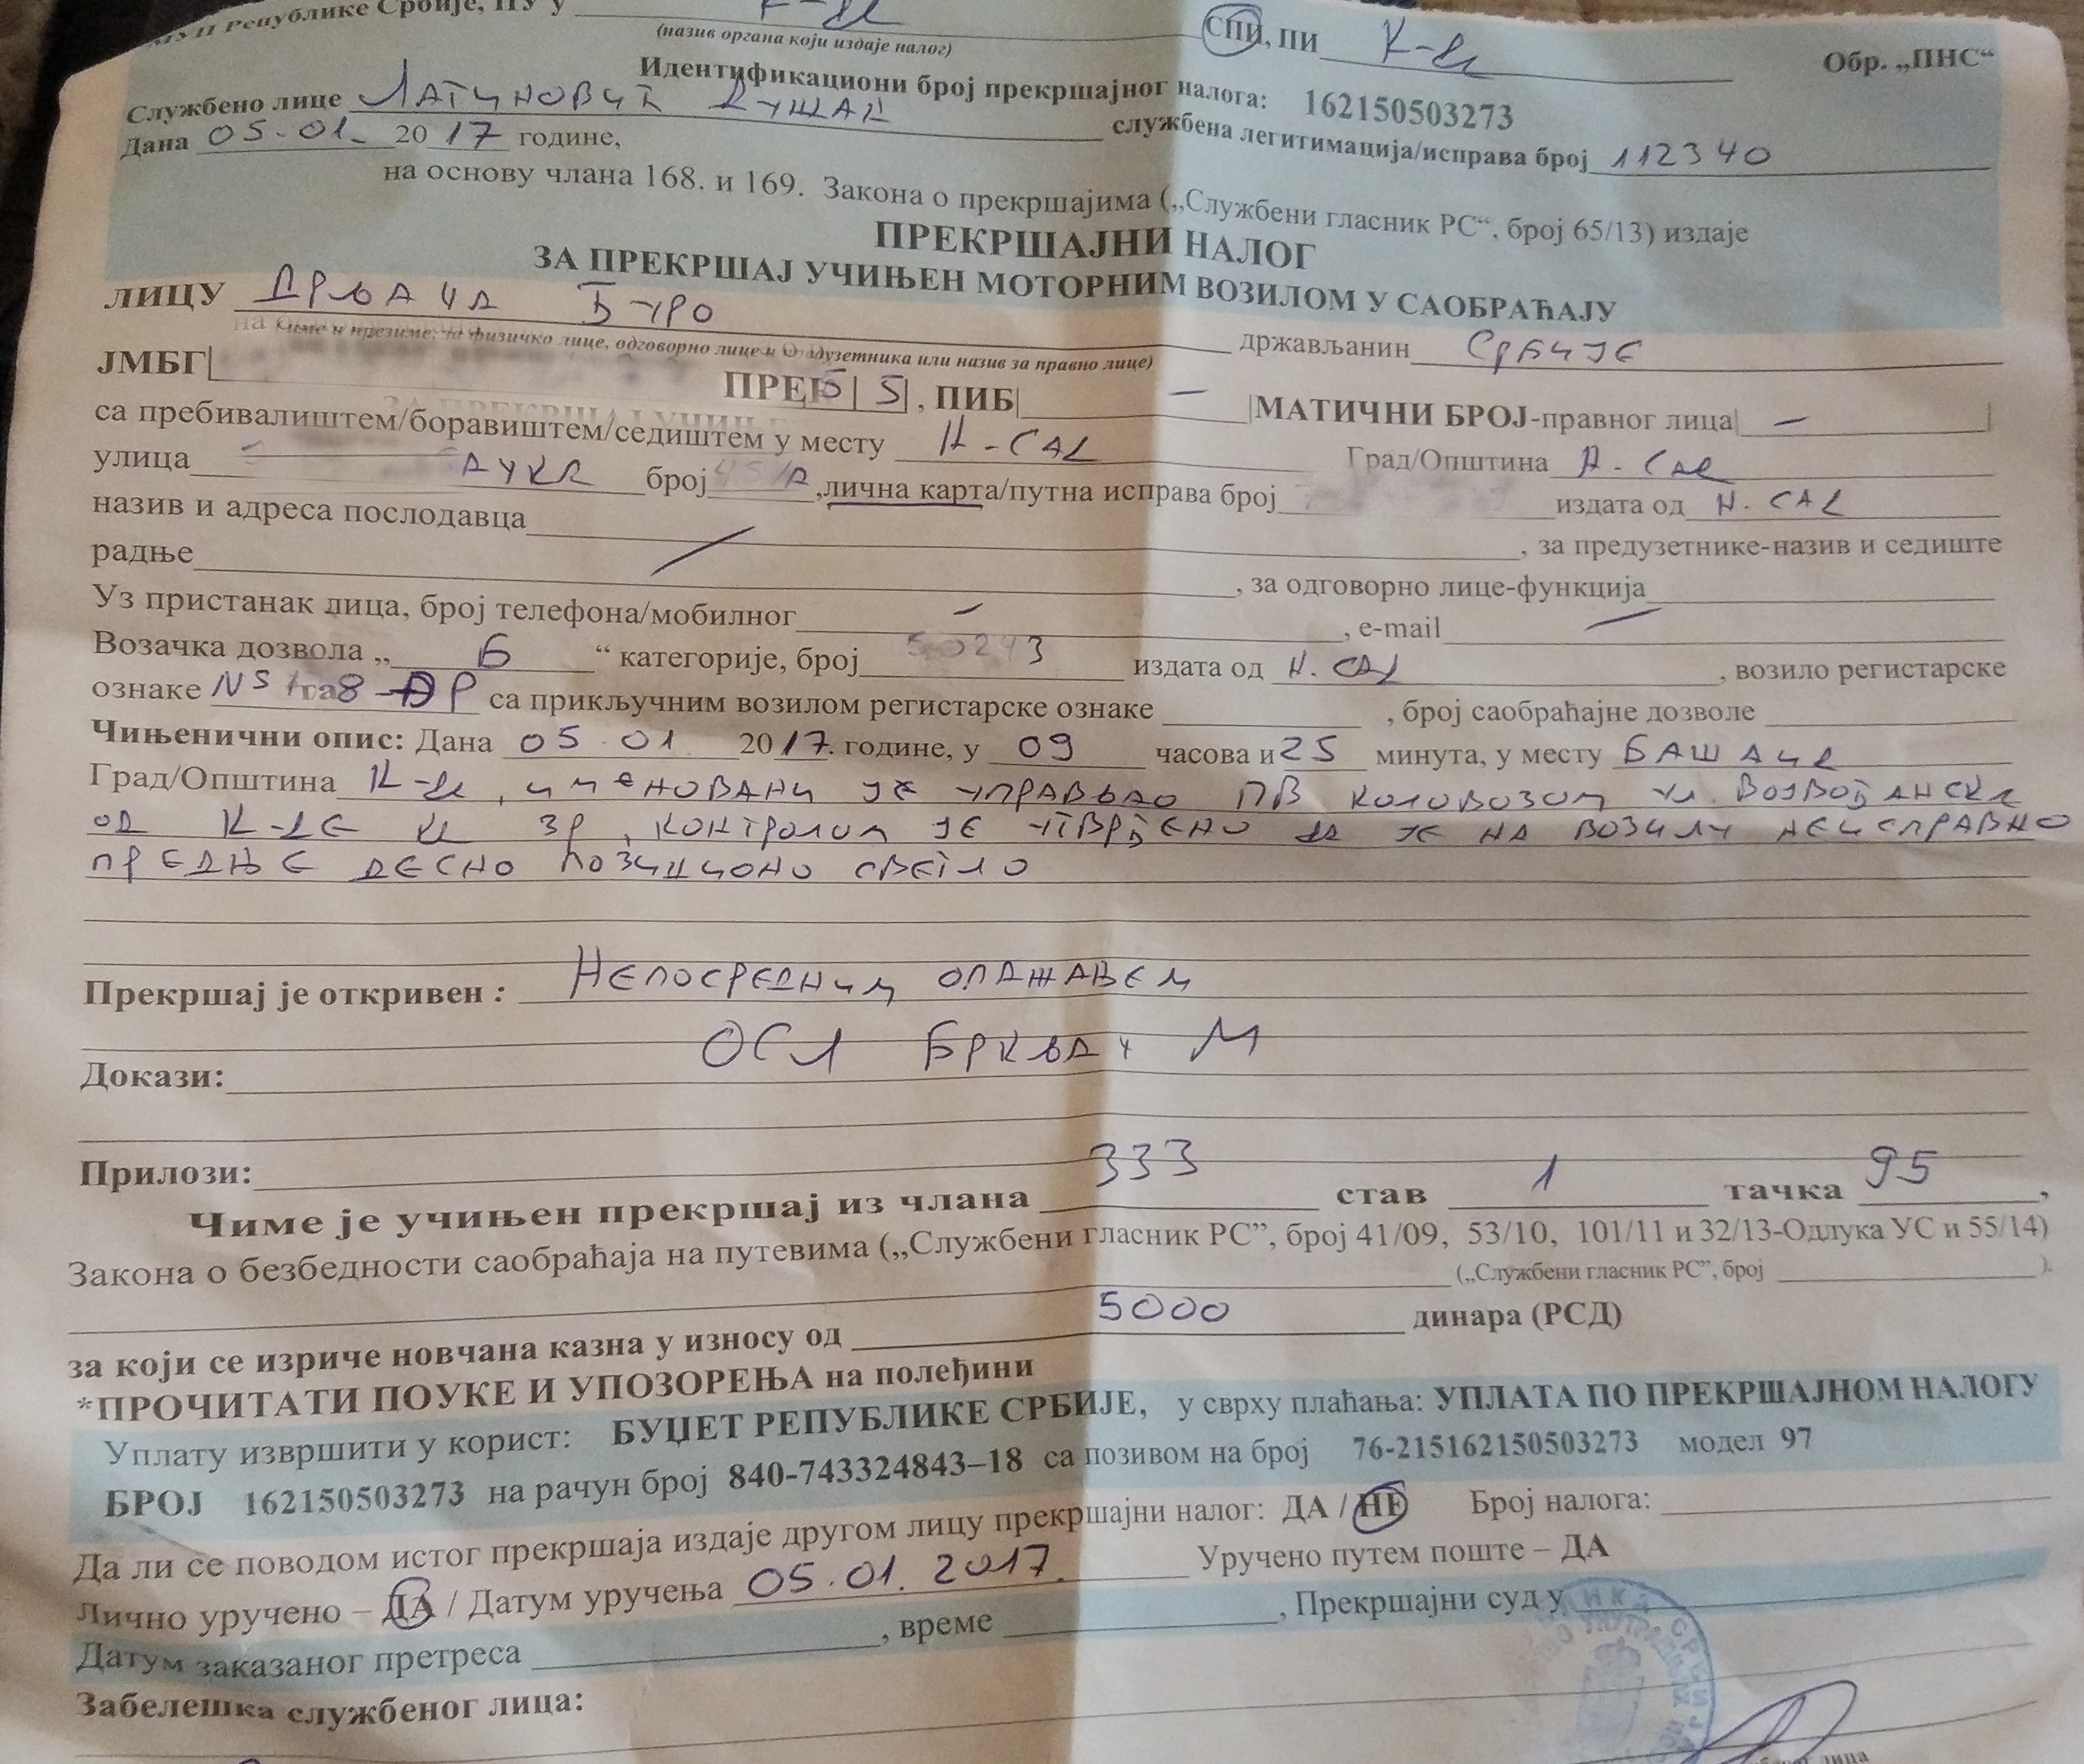 МУП Републике Србије, ПУ у К-да СПИ, ПИ К-да Обр. „ПНС“
(назив органа који издаје налог)
Идентификациони број прекршајног налога: 162150503273
Службено лице Латиновић Душан службена легитимација/исправа број 112340
Дана 05.01. 2017 године,
на основу члана 168. и 169. Закона о прекршајима („Службени гласник РС“, број 65/13) издаје
ПРЕКРШАЈНИ НАЛОГ
ЗА ПРЕКРШАЈ УЧИЊЕН МОТОРНИМ ВОЗИЛОМ У САОБРАЋАЈУ
ЛИЦУ Дрљача Ђуро држављанин Србије
(име и презиме, за физичко лице, одговорно лице и предузетника или назив за правно лице)
ЈМБГ 5 , ПИБ – МАТИЧНИ БРОЈ-правног лица –
са пребивалиштем/боравиштем/седиштем у месту Н-САЛ Град/Општина Н. САЛ
улица број , лична карта/путна исправа број издата од Н. САЛ
назив и адреса послодавца , за предузетнике-назив и седиште
радње , за одговорно лице-функција
Уз пристанак лица, број телефона/мобилног – , e-mail –
Возачка дозвола „ Б “ категорије, број издата од Н. САЛ , возило регистарске
ознаке са прикључним возилом регистарске ознаке , број саобраћајне дозволе
Чињенични опис: Дана 05.01. 2017. године, у 09 часова и 25 минута, у месту БАШАИД
Град/Општина К-да , именовани је управљао ПВ коловозом ул. Војвођанска
од К-де ка ЗР, контролом је утврђено да је на возилу неисправно
предње десно позиционо светло
Прекршај је откривен : Непосредним опажањем
ОСЛ Бркљач М
Докази:
Прилози:
Чиме је учињен прекршај из члана 333 став 1 тачка 95 ,
Закона о безбедности саобраћаја на путевима („Службени гласник РС”, број 41/09, 53/10, 101/11 и 32/13-Одлука УС и 55/14)
(„Службени гласник РС”, број )
за који се изриче новчана казна у износу од 5000 динара (РСД)
*ПРОЧИТАТИ ПОУКЕ И УПОЗОРЕЊА на полеђини
Уплату извршити у корист: БУЏЕТ РЕПУБЛИКЕ СРБИЈЕ, у сврху плаћања: УПЛАТА ПО ПРЕКРШАЈНОМ НАЛОГУ
БРОЈ 162150503273 на рачун број 840-743324843–18 са позивом на број 76-215162150503273 модел 97
Да ли се поводом истог прекршаја издаје другом лицу прекршајни налог: ДА / НЕ Број налога:
Лично уручено – ДА / Датум уручења 05.01.2017. Уручено путем поште – ДА
Датум заказаног претреса , време , Прекршајни суд у
Забелешка службеног лица: